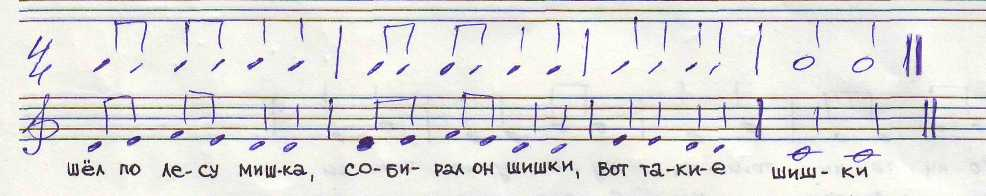 4 4
шёл по ле-су миш-ка, со-би-рал он шишки, вот та-ки-е шиш-ки